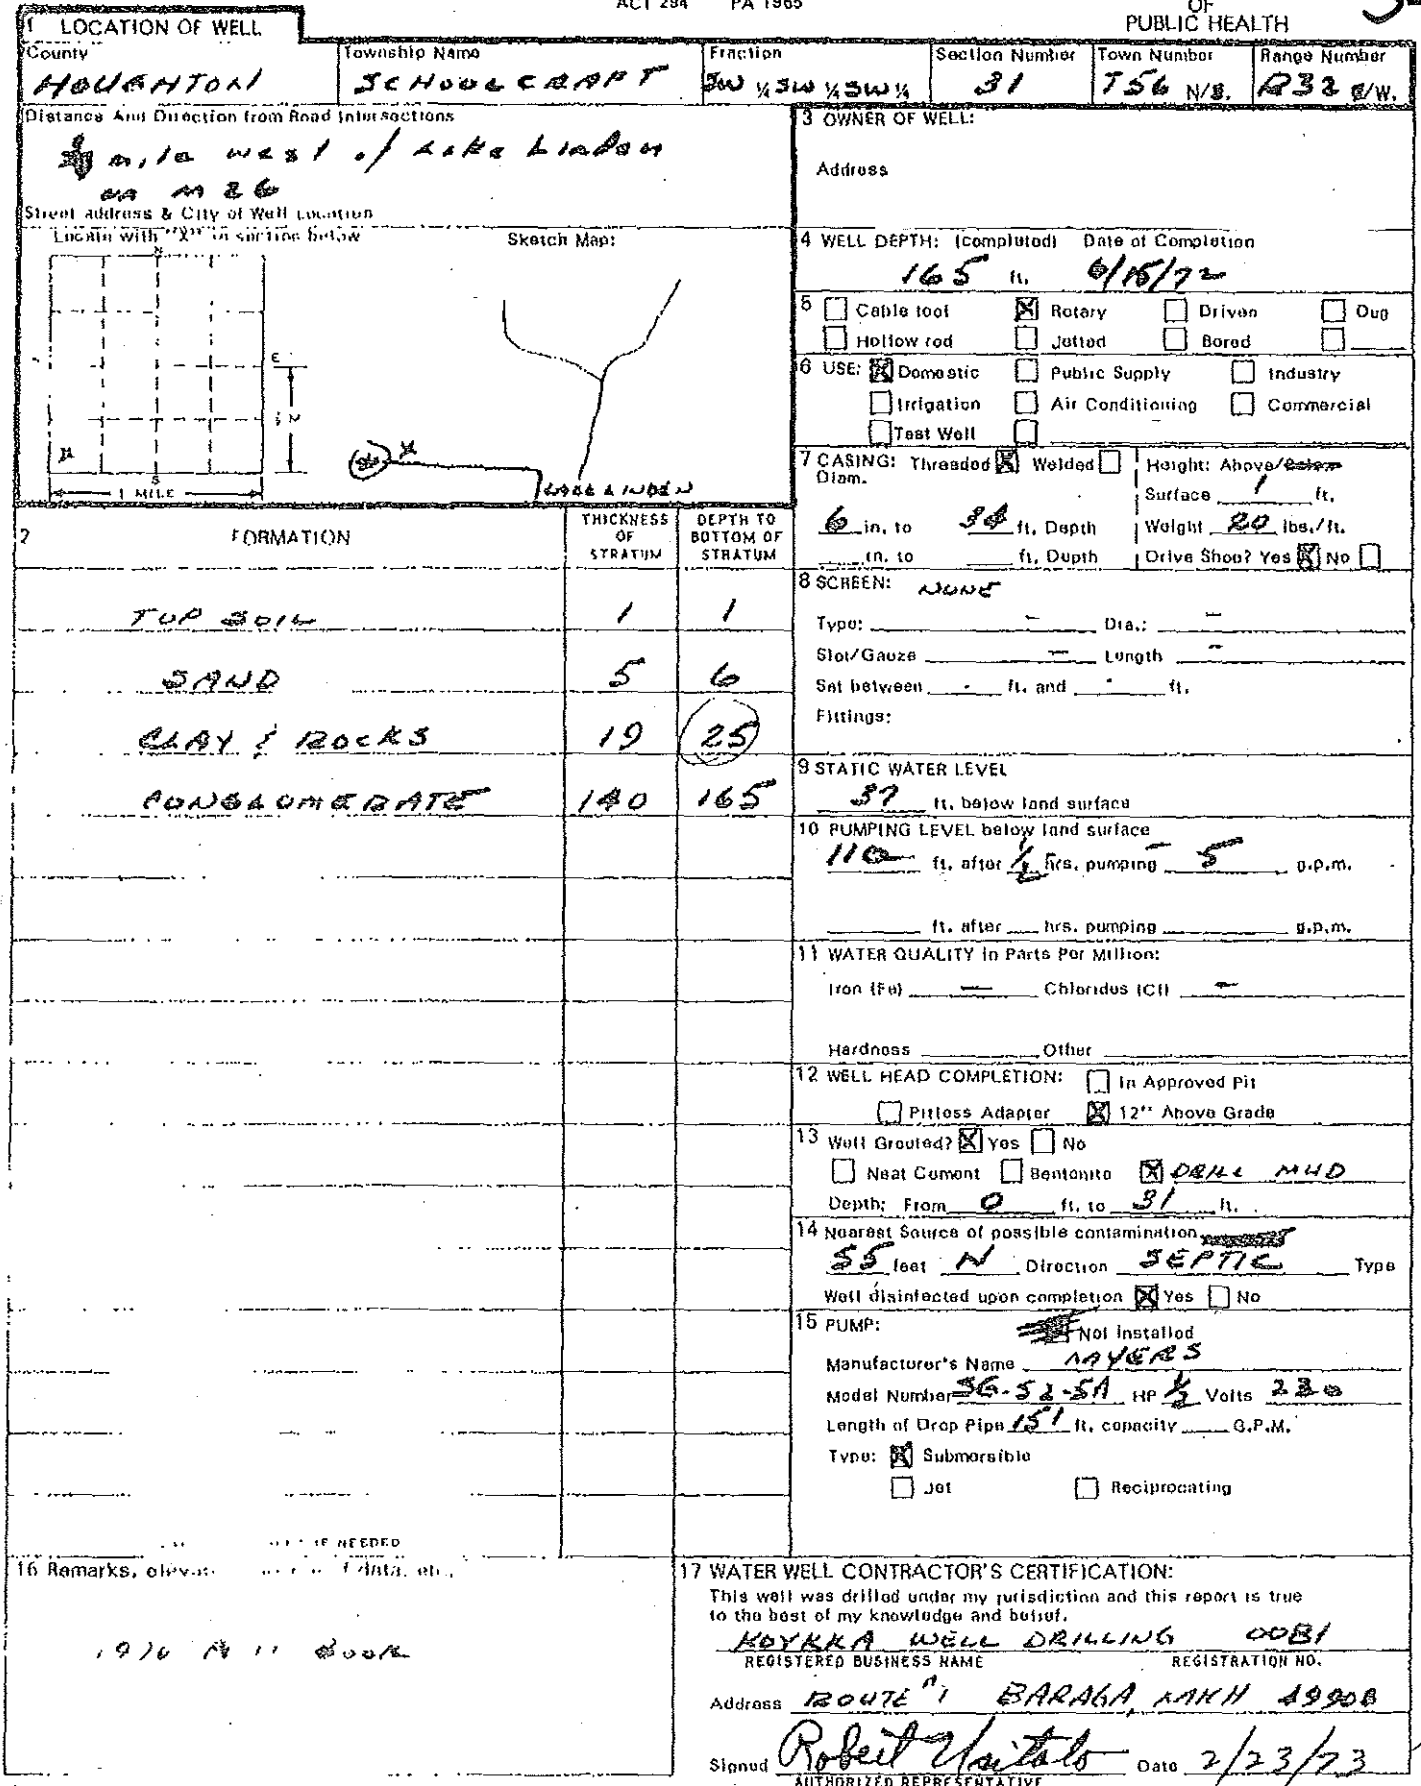 ACT 294 PA 1965
OF
PUBLIC HEALTH
1 LOCATION OF WELL
County
HOUGHTON
Township Name
SCHOOLCRAFT
Fraction
SW ¼ SW ¼ SW ¼
Section Number
31
Town Number
T56 N/S.
Range Number
R32 E/W.
Distance And Direction from Road Intersections
mile west of Lake Linden
on M 26
Street address & City of Well Location
Locate with "X" in section below
Sketch Map:
N
E
½
M
X
26
S
1 MILE
LAKE LINDEN
2 FORMATION
THICKNESS OF STRATUM
DEPTH TO BOTTOM OF STRATUM
TOP SOIL 1 1
SAND 5 6
CLAY & ROCKS 19 25
CONGLOMERATE 140 165
IF NEEDED
16 Remarks, elevat data, etc.
BOOK
3 OWNER OF WELL:
Address
4 WELL DEPTH: (completed) Date of Completion
165 ft. 6/15/72
5 Cable tool Rotary Driven Dug
Hollow rod Jetted Bored
6 USE: Domestic Public Supply Industry
Irrigation Air Conditioning Commercial
Test Well
7 CASING: Threaded Welded
Diam.
6 in. to ft. Depth
in. to ft. Depth
Height: Above/Below
Surface 1 ft.
Weight 20 lbs./ft.
Drive Shoe? Yes No
8 SCREEN: NONE
Type: - Dia.: -
Slot/Gauze - Length -
Set between - ft. and - ft.
Fittings:
9 STATIC WATER LEVEL
37 ft. below land surface
10 PUMPING LEVEL below land surface
110 ft. after ½ hrs. pumping 5 g.p.m.
ft. after hrs. pumping g.p.m.
11 WATER QUALITY in Parts Per Million:
Iron (Fe) - Chlorides (Cl) -
Hardness Other
12 WELL HEAD COMPLETION: In Approved Pit
Pitless Adapter 12" Above Grade
13 Well Grouted? Yes No
Neat Cement Bentonite DRILL MUD
Depth: From 0 ft. to 31 ft.
14 Nearest Source of possible contamination
55 feet N Direction SEPTIC Type
Well disinfected upon completion Yes No
15 PUMP: Not Installed
Manufacturer's Name MYERS
Model Number HP ½ Volts 230
Length of Drop Pipe 151 ft. capacity G.P.M.
Type: Submersible
Jet Reciprocating
17 WATER WELL CONTRACTOR'S CERTIFICATION:
This well was drilled under my jurisdiction and this report is true
to the best of my knowledge and belief.
KOYKKA WELL DRILLING 0081
REGISTERED BUSINESS NAME REGISTRATION NO.
Address ROUTE #1 BARAGA, MICH 49908
Signed Robert Uitalo Date 2/23/73
AUTHORIZED REPRESENTATIVE